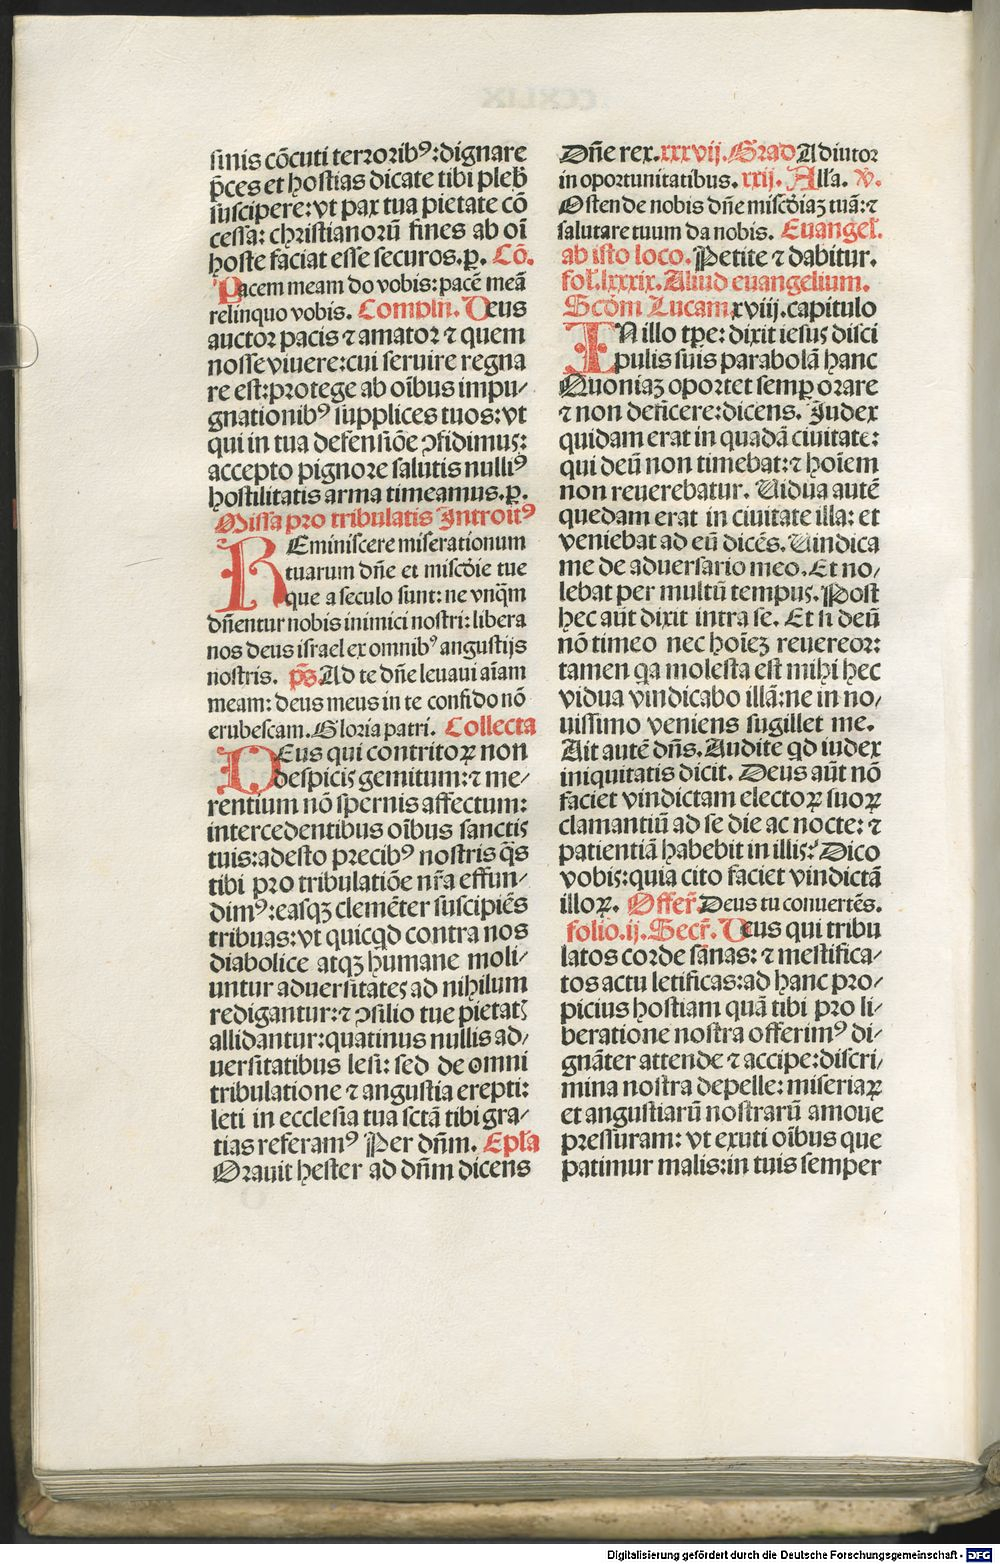 sinis cōcuti terroribꝰ: dignare
p̄ces et hostias dicate tibi pleb̄
suscipere: vt pax tua pietate cō
cessa: christianorū fines ab oī
hoste faciat esse securos. p̱. Cō.
Pacem meam do vobis: pacē meā
relinquo vobis. Compln̄. Deus
auctor pacis ⁊ amator ⁊ quem
nosse viuere: cui seruire regna
re est: protege ab oībus impu⸗
gnationibꝰ supplices tuos: vt
qui in tua defensiōe ꝯfidimus:
accepto pignore salutis nulliꝰ
hostilitatis arma timeamus. p̱.
Missa pro tribulatis Introitꝰ
REminiscere miserationum
tuarum dn̄e et misc̄die tue
que a seculo sunt: ne vnq̄m
dn̄entur nobis inimici nostri: libera
nos deus israel ex omnibꝰ angustijs
nostris. p̄s Ad te dn̄e leuaui aīam
meam: deus meus in te confido nō
erubescam. Gloria patri. Collecta
DEus qui contritoꝝ non
despicis gemitum: ⁊ me⸗
rentium nō spernis affectum:
intercedentibus oībus sanctis
tuis: adesto precibꝰ nostris q̄s
tibi pro tribulatiōe nr̄a effun⸗
dimꝰ: easqꝫ clemēter suscipiēs
tribuas: vt quicqd contra nos
diabolice atqꝫ humane moli⸗
untur aduersitates ad nihilum
redigantur: ⁊ ꝯsilio tue pietatꝭ
allidantur: quatinus nullis ad⸗
uersitatibus lesi: sed de omni
tribulatione ⁊ angustia erepti:
leti in ecclesia tua sctā tibi gra⸗
tias referamꝰ Per dn̄m. Epl̄a
Orauit hester ad dn̄m dicens
Dn̄e rex. xxxvij. Grad Adiutor
in oportunitatibus. xxij. All̄a. V.
Ostende nobis dn̄e misc̄diaꝫ tuā: ⁊
salutare tuum da nobis. Euangel̄.
ab isto loco. Petite ⁊ dabitur.
fol̄. lxxxix. Aliud euangelium.
Scd̄m Lucam xviij. capitulo
IN illo tp̄e: dixit iesus disci
pulis suis parabolā hanc
Quoniaꝫ oportet semp̱ orare
⁊ non deficere: dicens. Judex
quidam erat in quadā ciuitate:
qui deū non timebat: ⁊ hoīem
non reuerebatur. Uidua autē
quedam erat in ciuitate illa: et
veniebat ad eū dicēs. Uindica
me de aduersario meo. Et no⸗
lebat per multū tempus. Post
hec aūt dixit intra se. Et si deū
nō timeo nec hoīeꝫ reuereor:
tamen qa molesta est mihi hec
vidua vindicabo illā: ne in no⸗
uissimo veniens sugillet me.
Ait autē dn̄s. Audite qd iudex
iniquitatis dicit. Deus aūt nō
faciet vindictam electoꝝ suoꝝ
clamantiū ad se die ac nocte: ⁊
patientiā habebit in illis? Dico
vobis: quia cito faciet vindictā
illoꝝ. Offer̄. Deus tu conuertēs.
folio. ij. Secr̄. Deus qui tribu
latos corde sanas: ⁊ mestifica⸗
tos actu letificas: ad hanc pro⸗
picius hostiam quā tibi pro li⸗
beratione nostra offerimꝰ di⸗
gnāter attende ⁊ accipe: discri⸗
mina nostra depelle: miseriaꝝ
et angustiarū nostrarū amoue
pressuram: vt exuti oībus que
patimur malis: in tuis semper
Digitalisierung gefördert durch die Deutsche Forschungsgemeinschaft - DFG